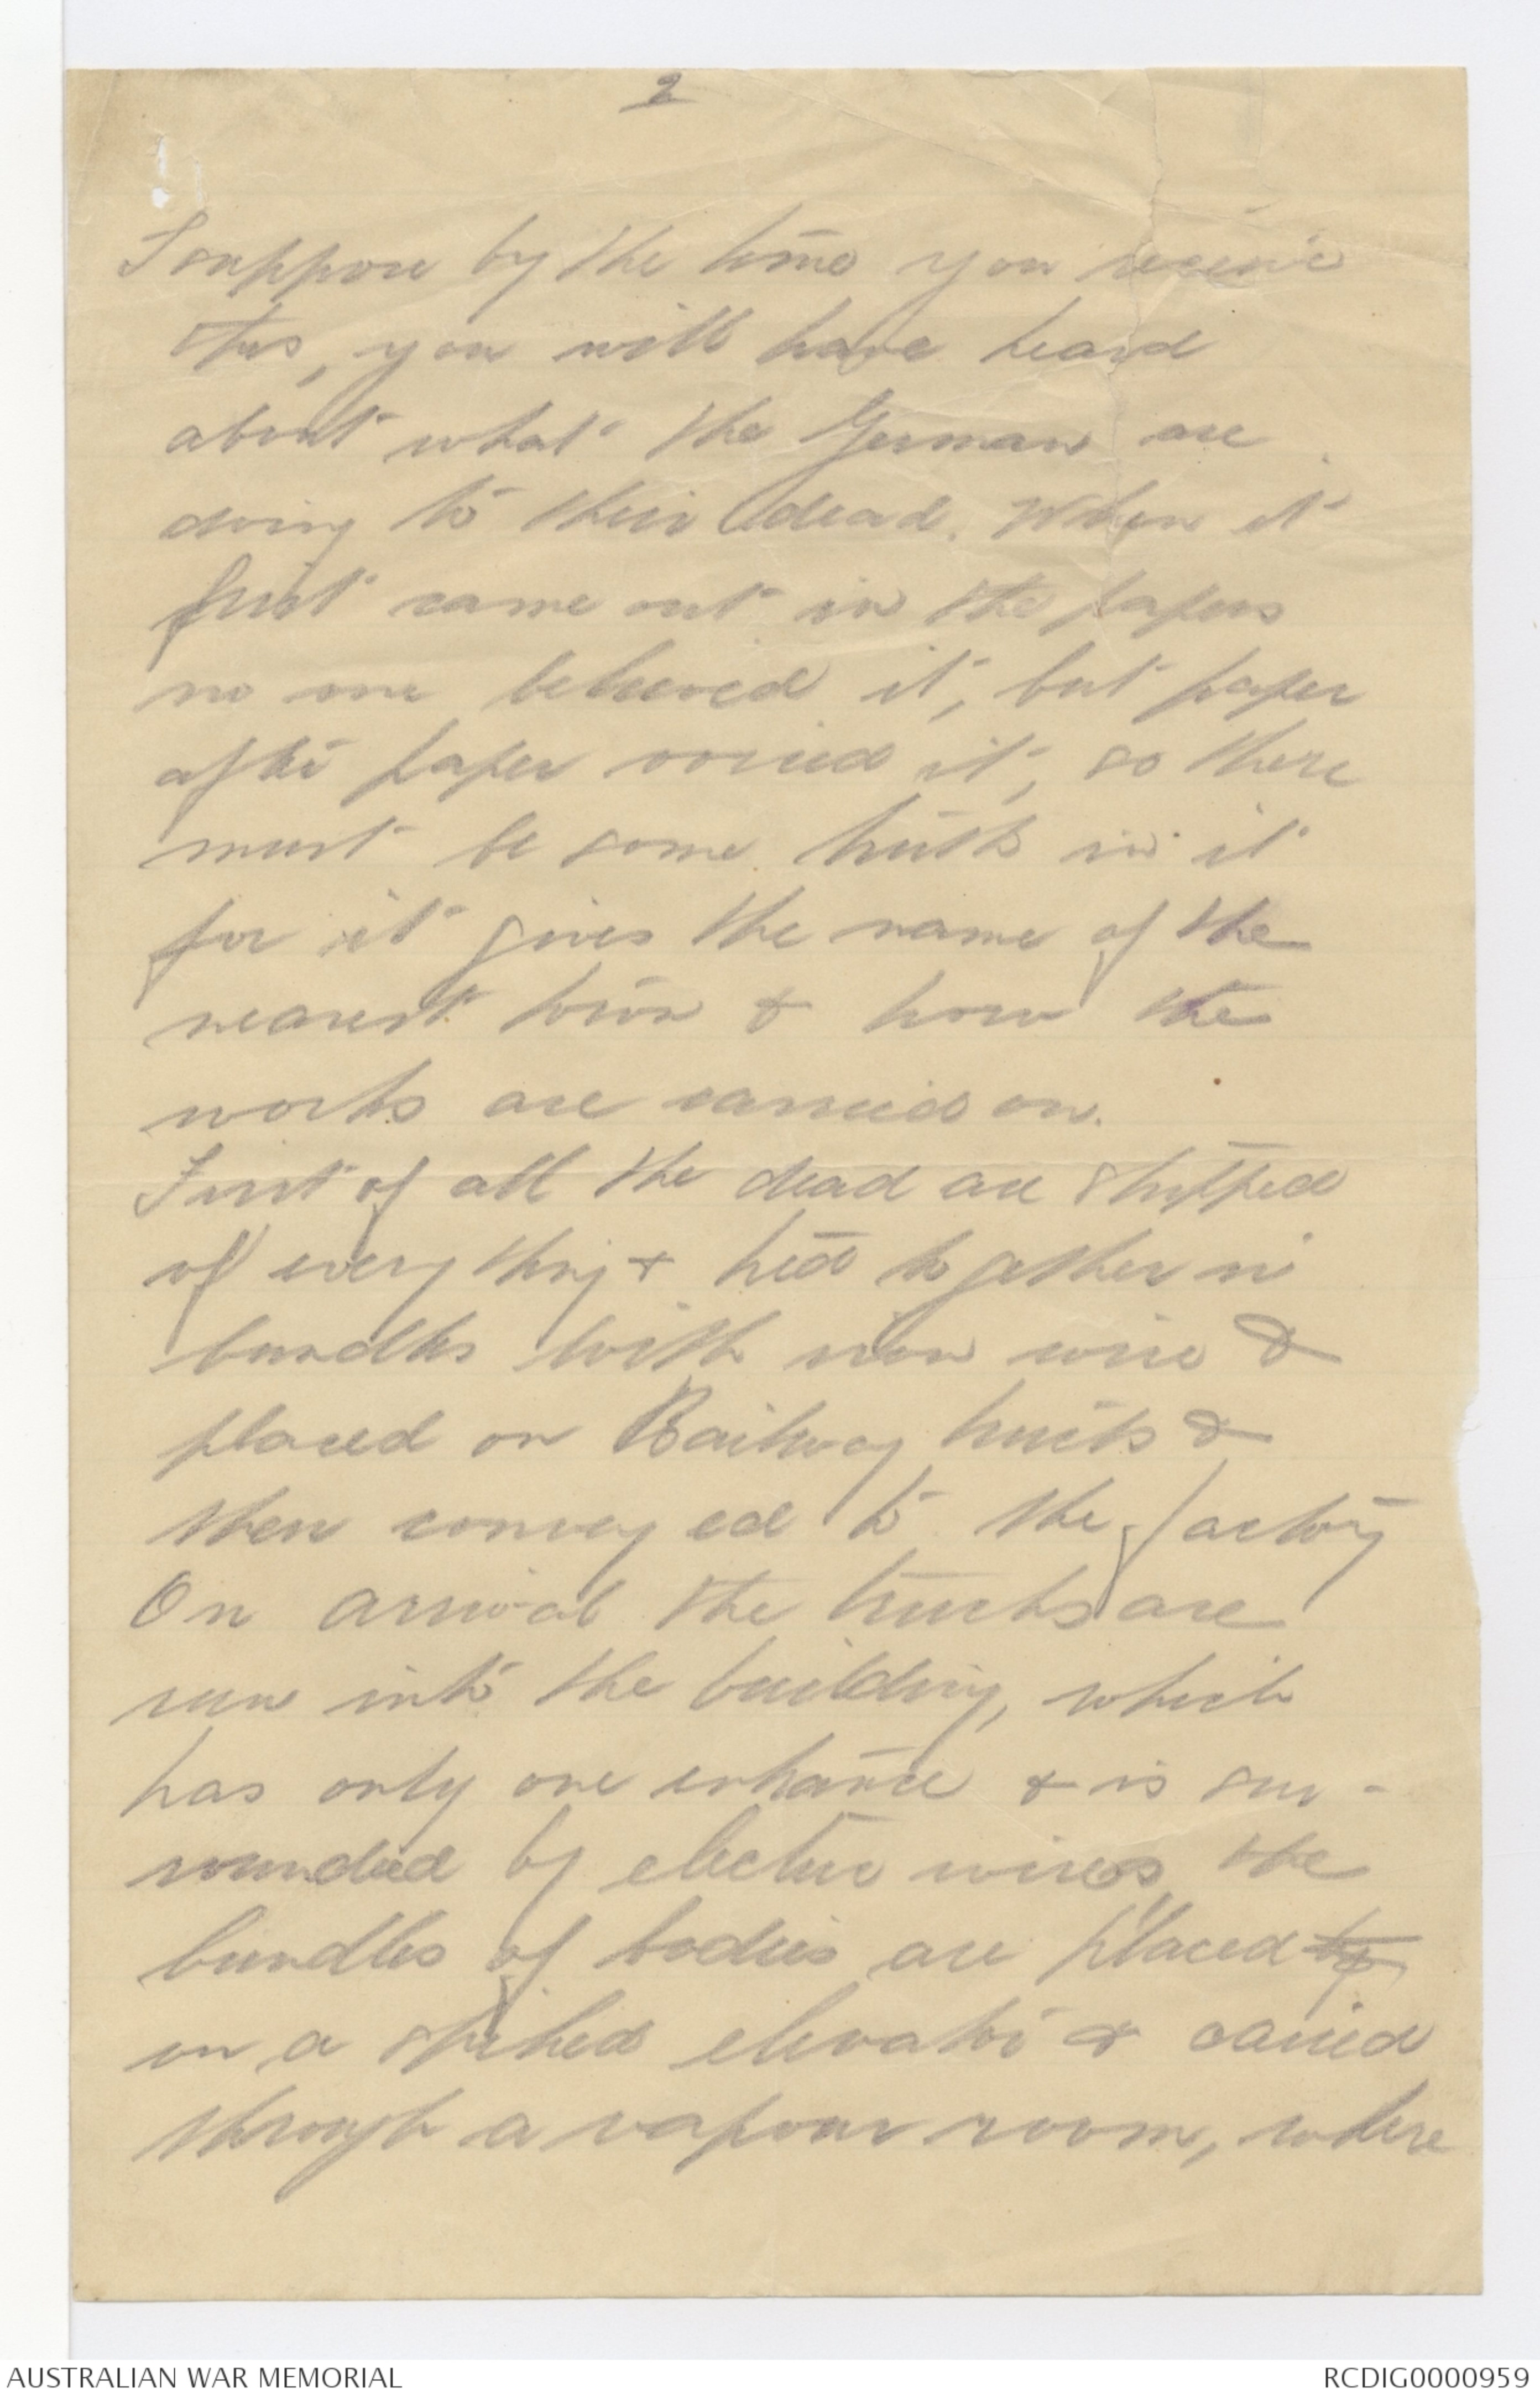 2
I suppose by the time you receive
this, you will have heard
about what the German are
doing to their dead. When it
first came out in the papers
no one believed it, but paper
after paper voiced it, so there
must be some truth in it
for it gives the name of the
nearest town & how the
works are carried on.
First of all the dead are stripped
of everything & tied together in
bundles with iron wire &
placed on Railway trucks &
then conveyed to the factory
On arrival the trucks are
run into the building, which
has only one entrance & is sur-
rounded by electric wires, the
bundles of bodies are placed to
on a spiked elevator & carried
through a vapour room, where
AUSTRALIAN WAR MEMORIAL
RCDIG0000959